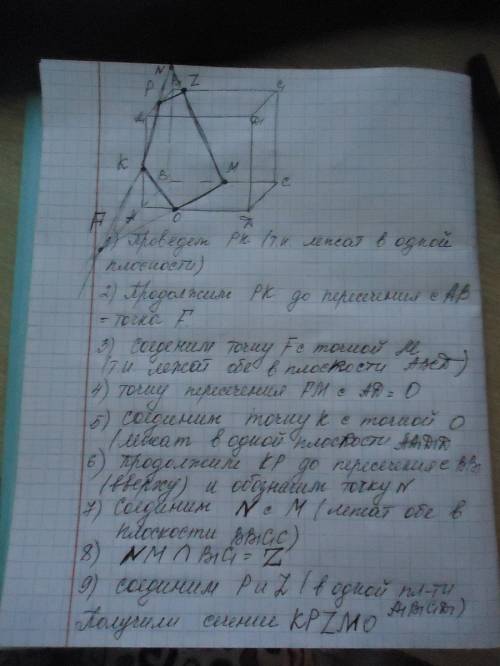 N
P B1 Z C1
A1 D1
K
B M C
F A O D
1) Проведем PK (т.к лежат в одной
плоскости)
2) Продолжим PK до пересечения с AB
= точка F
3) соединим точку F с точкой M
(т.к лежат обе в плоскости ABCD)
4) точку пересечения FM с AD = O
5) соединим точку K с точкой O
(лежат в одной плоскости AA1D1D
6) Продолжим KP до пересечения с BB1
(вверху) и обозначим точку N
7) Соединим N с M (лежат обе в
плоскости BB1C1C)
8) NM ∩ B1C1 = Z
9) соединим P и Z (в одной пл-ти
A1B1C1D1)
Получили сечение KPZMO